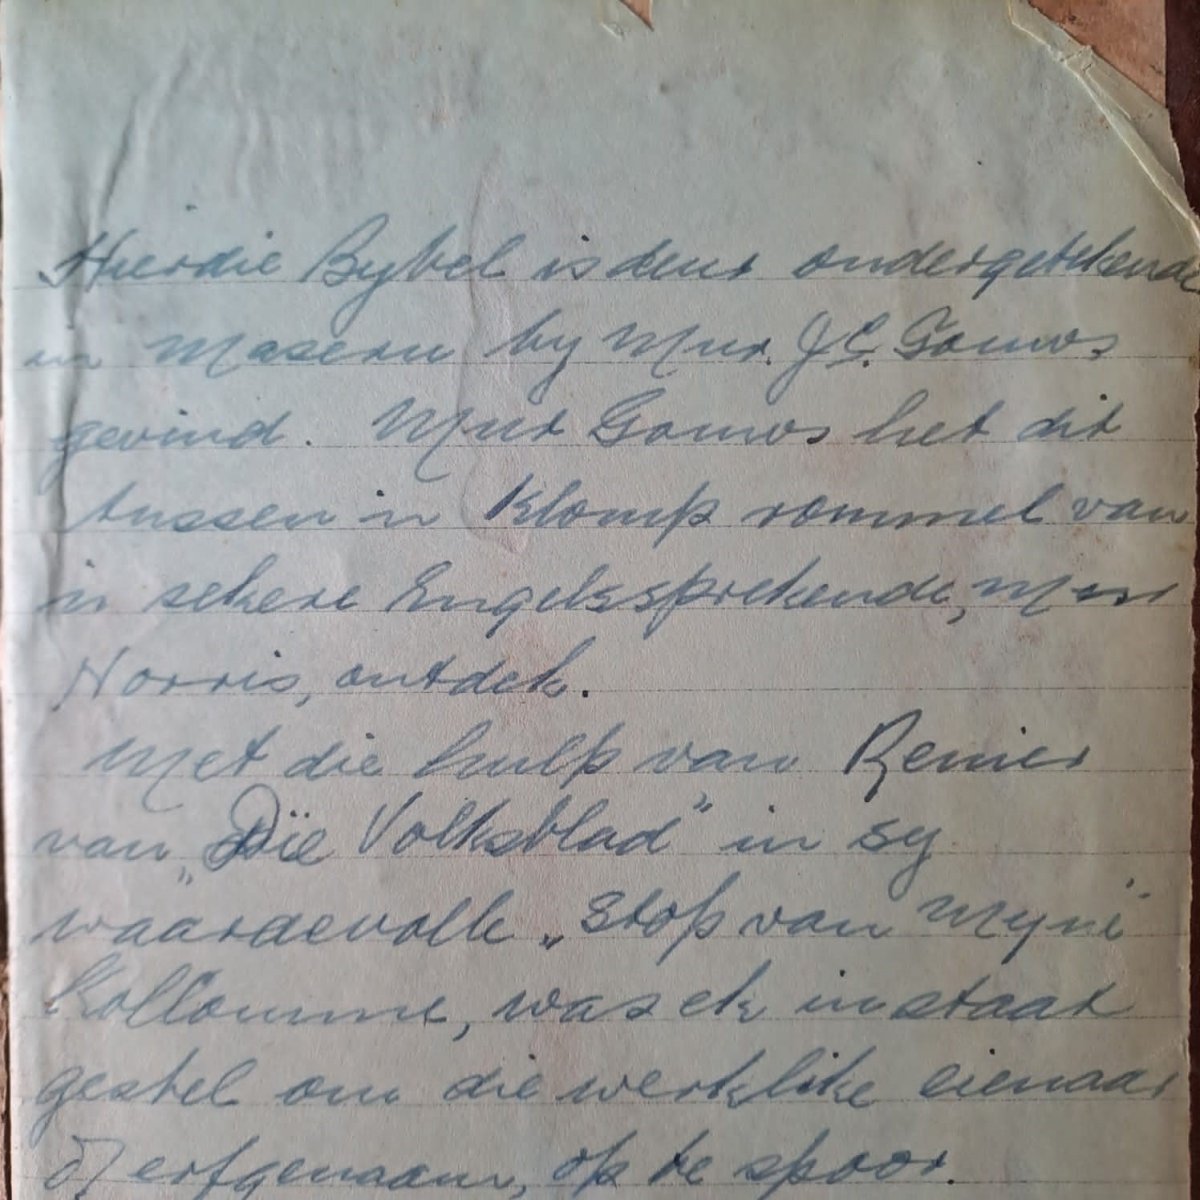 Hierdie Bybel is deur ondergetekende
in Maseru by Mnr. J.C. Gouws
gevind. Mnr Gouws het dit
tussen 'n klomp rommel van
'n sekere Engelssprekende, Mnr
Norris, ontdek.
Met die hulp van Renier
van „Die Volksblad" in sy
waardevolle „Stop van Myne"
Kollomme, was ek instaat
gestel om die werklike eienaar
of erfgenaam, op te spoor.